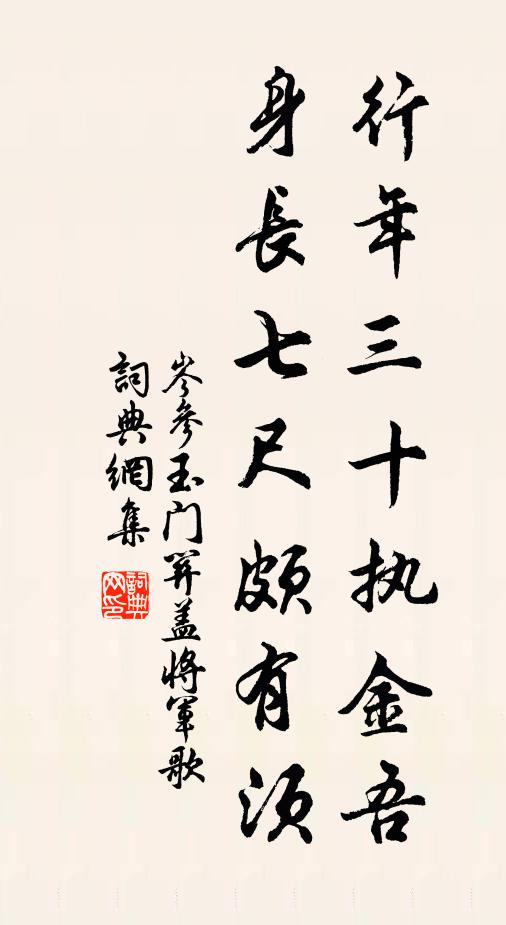 行年三十执金吾
身長七尺頗有须
岑參玉门関盖将軍歌
詞典網集
詞典网印